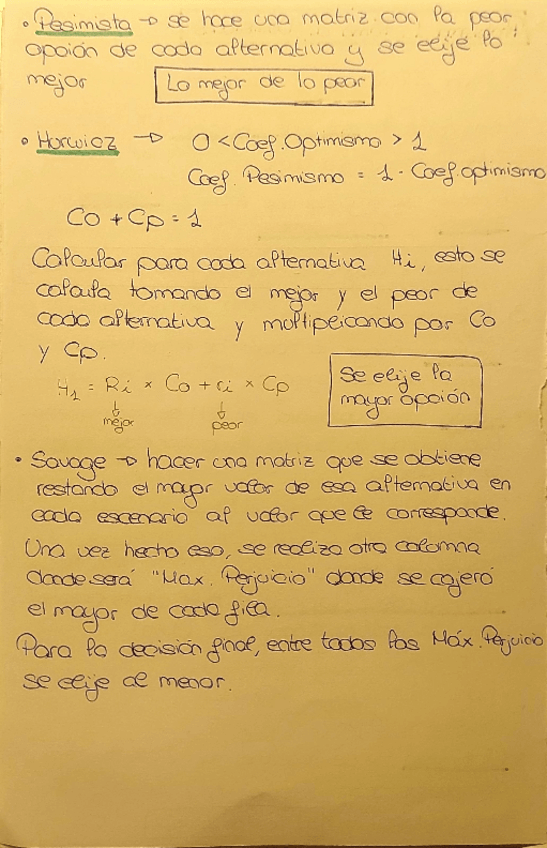 • Pesimista → se hace una matriz con la peor
opción de cada alternativa y se elije lo
mejor
Lo mejor de lo peor
• Hurwicz → 0 < Coef. Optimismo > 1
Coef. Pesimismo = 1 - Coef. optimismo
Co + Cp = 1
Calcular para cada alternativa Hi, esto se
calcula tomando el mejor y el peor de
cada alternativa y multiplicando por Co
y Cp.
H1 = Ri × Co + ri × Cp
mejor peor
Se elije la
mayor opción
• Savage → hacer una matriz que se obtiene
restando el mayor valor de esa alternativa en
cada escenario al valor que le corresponde.
Una vez hecho eso, se realiza otra columna
donde será "Max. Perjuicio" donde se cojerá
el mayor de cada fila.
Para la decisión final, entre todos los Máx. Perjuicio
se elije al menor.